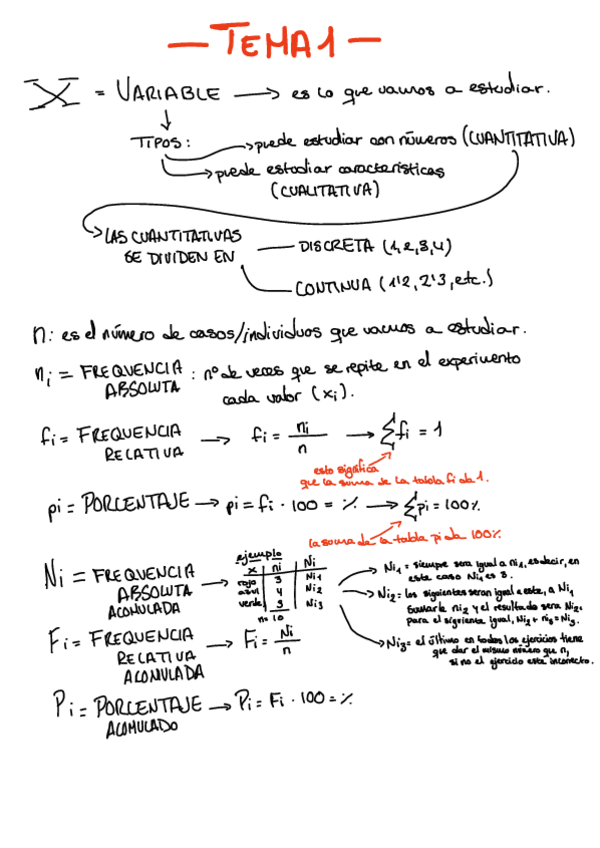 — TEMA 1 —
X = VARIABLE → es lo que vamos a estudiar.
TIPOS: → puede estudiar con números (CUANTITATIVA)
→ puede estudiar características
(CUALITATIVA)
→ LAS CUANTITATIVAS
SE DIVIDEN EN
DISCRETA (1,2,3,4)
CONTINUA (1'2, 2'3, etc.)
n: es el número de casos/individuos que vamos a estudiar.
ni = FREQUENCIA ABSOLUTA : nº de veces que se repite en el experimento
cada valor (xi).
fi = FREQUENCIA RELATIVA → fi = ni/n → Σfi = 1
esto significa
que la suma de la tabla fi da 1.
pi = PORCENTAJE → pi = fi · 100 = % → Σpi = 100%
la suma de la tabla pi da 100%
Ni = FREQUENCIA
ABSOLUTA
ACOMULADA
ejemplo
x | ni | Ni
rojo | 3 | Ni1
azul | 4 | Ni2
verde | 3 | Ni3
n=10
→ Ni1 = siempre sera igual a ni1, es decir, en
este caso Ni1 es 3.
→ Ni2 = los siguientes seran igual a este, a Ni1
sumarle ni2 y el resultado sera Ni2.
para el siguiente igual, Ni2 + ni3 = Ni3.
→ Ni3 = el último en todos los ejercicios tiene
que dar el mismo número que n,
si no el ejercicio esta incorrecto.
Fi = FREQUENCIA → Fi = Ni/n
RELATIVA
ACOMULADA
Pi = PORCENTAJE → Pi = Fi · 100 = %
ACOMULADO